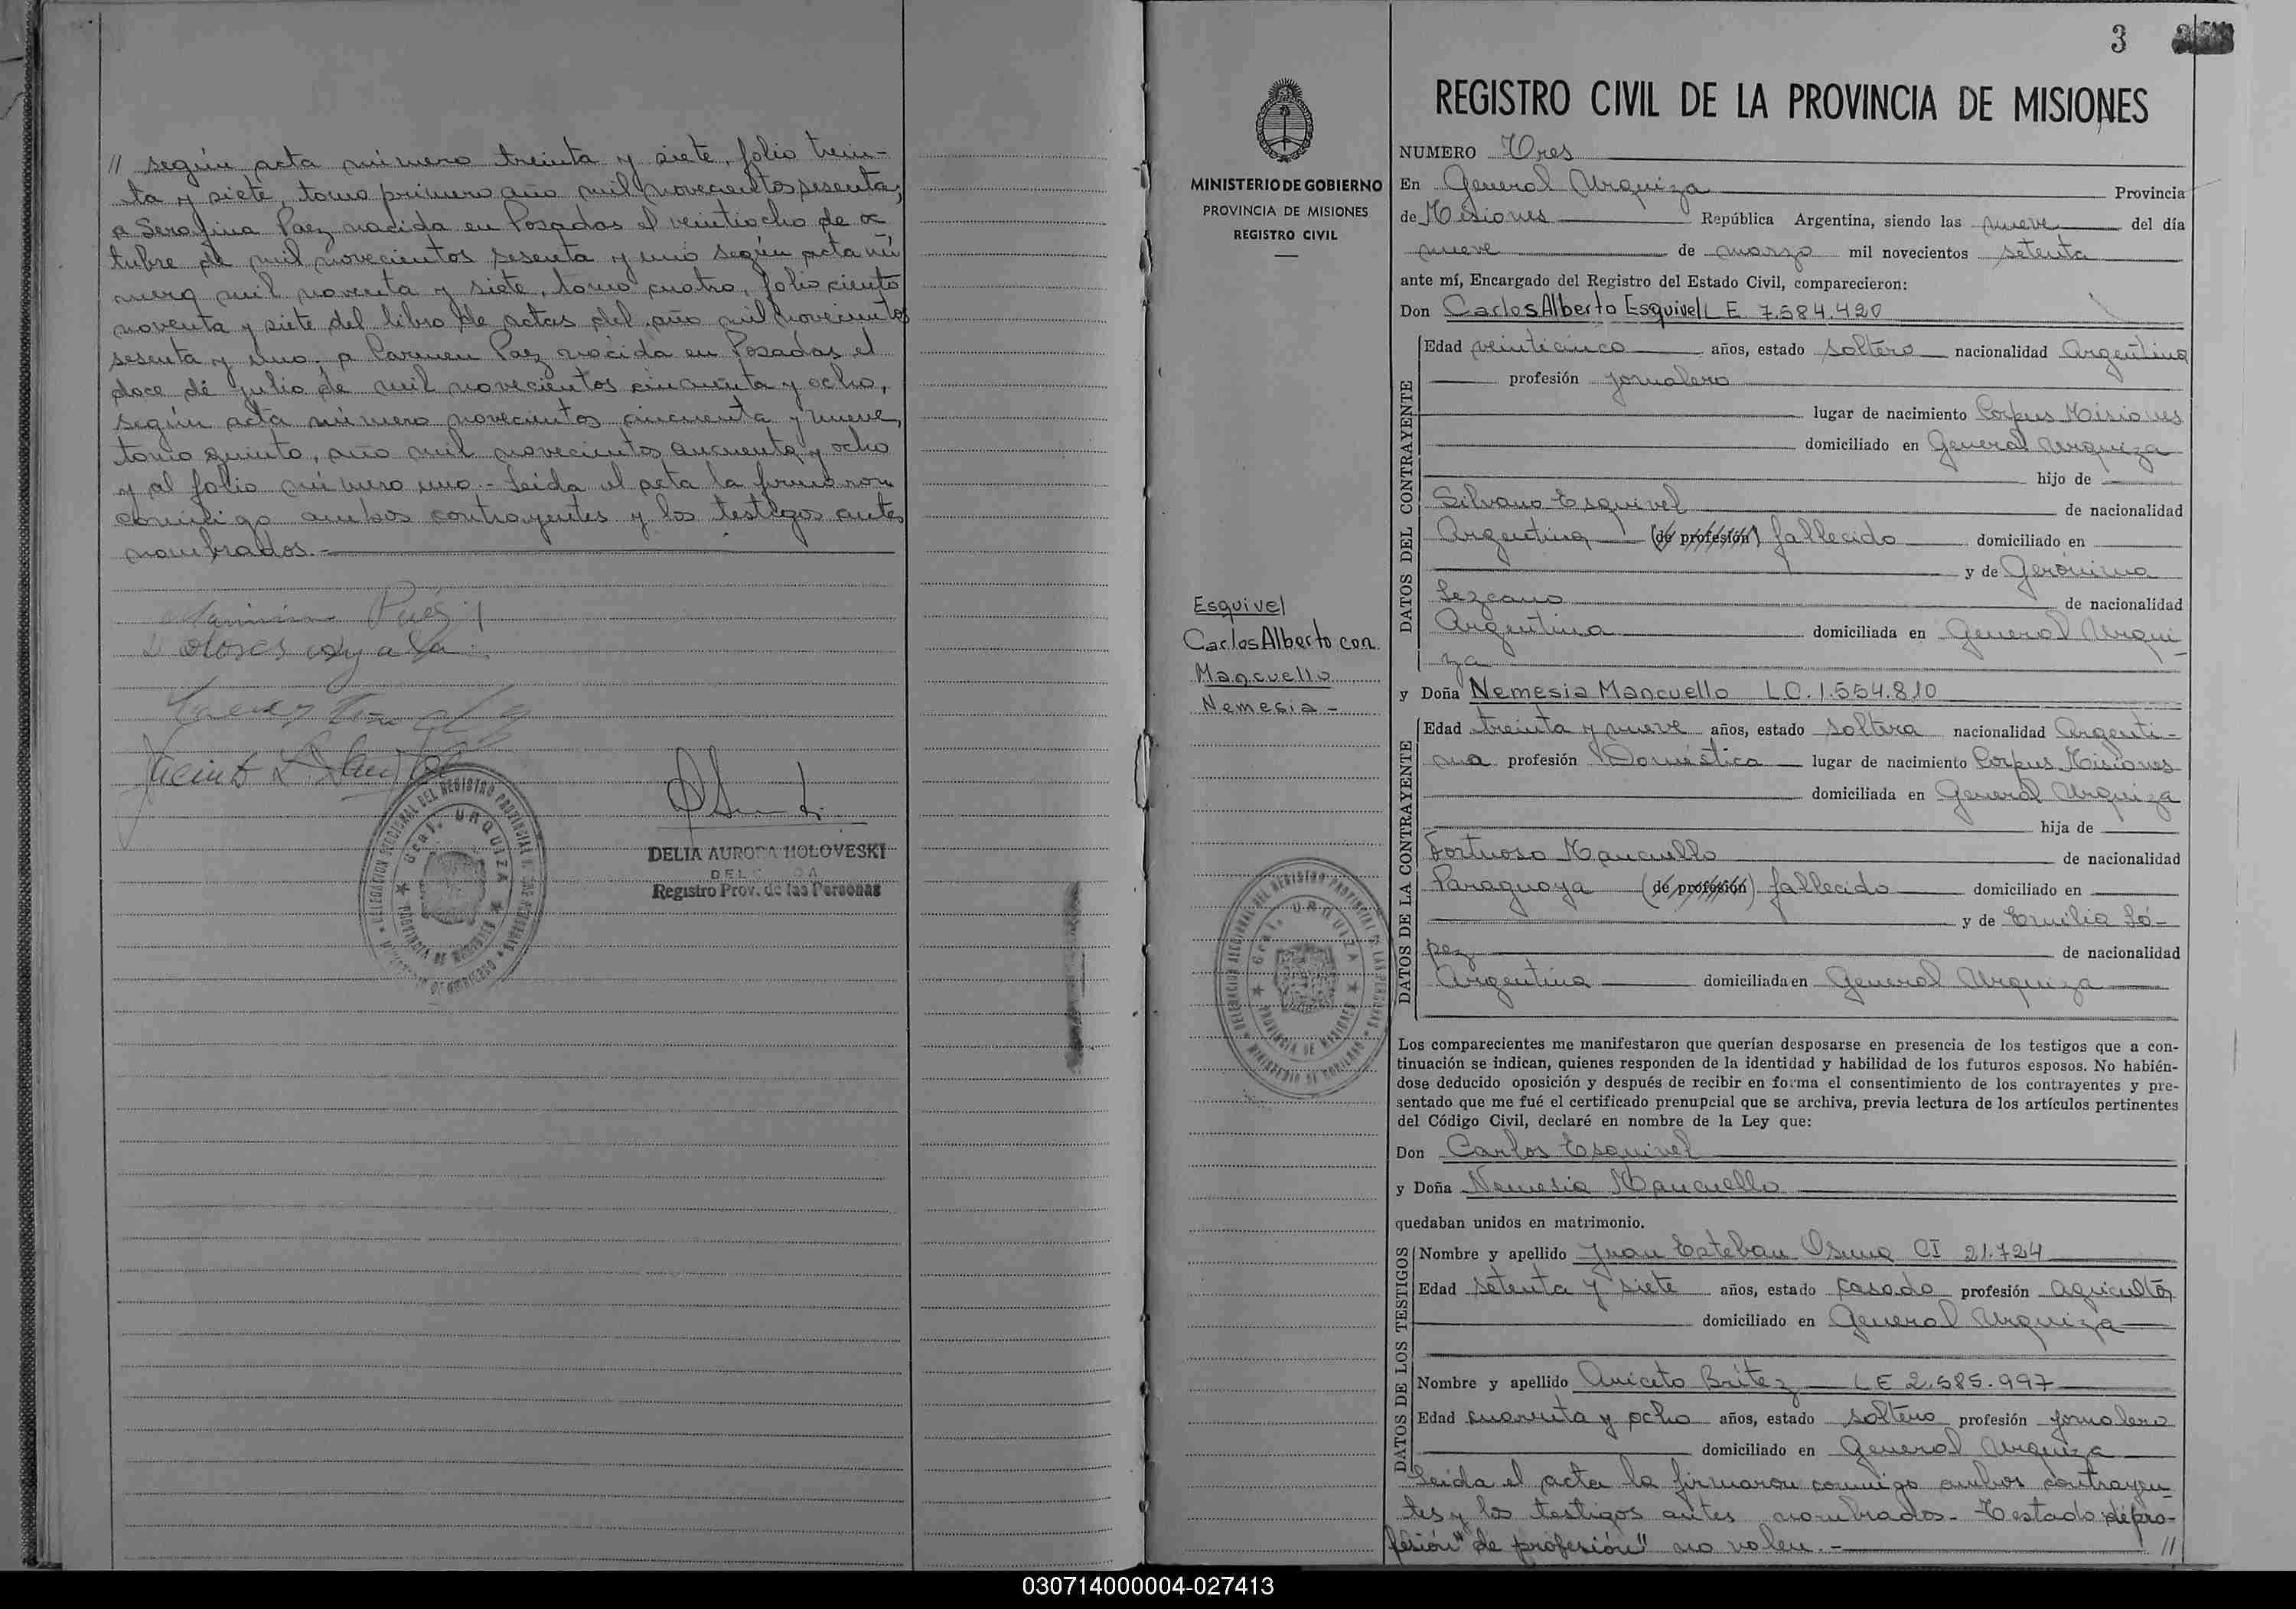 // según acta número treinta y siete, folio trein-
ta y siete, tomo primero año mil novecientos sesenta;
a Serafina Paez nacida en Posadas el veintiocho de oc
tubre de mil novecientos sesenta y uno según acta nú
mero mil noventa y siete, tomo cuatro, folio ciento
noventa y siete del libro de actas del año mil novecientos
sesenta y uno; a Carmen Paez nacida en Posadas el
doce de julio de mil novecientos cincuenta y ocho,
según acta número novecientos cincuenta y nueve,
tomo quinto, año mil novecientos cincuenta y ocho
y al folio número uno - Leida el acta la firmaron
conmigo ambos contrayentes y los testigos antes
nombrados.-
Paéz
Dolores ayala
DELIA AURORA HOLOVESKI
Registro Prov. de las Personas
DELEGACION SECCIONAL DEL REGISTRO PROVINCIAL DE LAS PERSONAS
Gral. URQUIZA
PROVINCIA DE MISIONES
MINISTERIO DE GOBIERNO
3
MINISTERIO DE GOBIERNO
PROVINCIA DE MISIONES
REGISTRO CIVIL
Esquivel
Carlos Alberto con
Mancuello
Nemesia -
DELEGACION SECCIONAL DEL REGISTRO PROVINCIAL DE LAS PERSONAS
Gral. URQUIZA
PROVINCIA DE MISIONES
MINISTERIO DE GOBIERNO
REGISTRO CIVIL DE LA PROVINCIA DE MISIONES
NUMERO Tres
En General Urquiza Provincia
de Misiones República Argentina, siendo las nueve del día
nueve de marzo mil novecientos setenta
ante mí, Encargado del Registro del Estado Civil, comparecieron:
Don Carlos Alberto Esquivel L E 7.584.420
DATOS DEL CONTRAYENTE
Edad veinticinco años, estado soltero nacionalidad Argentina
profesión jornalero
lugar de nacimiento Corpus Misiones
domiciliado en General Urquiza
hijo de
Silvano Esquivel de nacionalidad
Argentina (de profesión) fallecido domiciliado en
y de Gerónima
Lezcano de nacionalidad
Argentina domiciliada en General Urqui-
za
y Doña Nemesia Mancuello L.C. 1.554.810
DATOS DE LA CONTRAYENTE
Edad treinta y nueve años, estado soltera nacionalidad Argenti-
na profesión Doméstica lugar de nacimiento Corpus Misiones
domiciliada en General Urquiza
hija de
Fortuoso Mancuello de nacionalidad
Paraguaya (de profesión) fallecido domiciliado en
y de Emilia Ló-
pez de nacionalidad
Argentina domiciliada en General Urquiza
Los comparecientes me manifestaron que querían desposarse en presencia de los testigos que a con-
tinuación se indican, quienes responden de la identidad y habilidad de los futuros esposos. No habién-
dose deducido oposición y después de recibir en forma el consentimiento de los contrayentes y pre-
sentado que me fué el certificado prenupcial que se archiva, previa lectura de los artículos pertinentes
del Código Civil, declaré en nombre de la Ley que:
Don Carlos Esquivel
y Doña Nemesia Mancuello
quedaban unidos en matrimonio.
DATOS DE LOS TESTIGOS
Nombre y apellido Juan Esteban Osuna CI 21.724
Edad setenta y siete años, estado casado profesión agricultor
domiciliado en General Urquiza
Nombre y apellido Aniceto Britez L E 2.585.997
Edad cuarenta y ocho años, estado soltero profesión jornalero
domiciliado en General Urquiza
Leida el acta la firmaron conmigo ambos contrayen-
tes y los testigos antes nombrados- Testado: de pro-
fesión" de profesión" no valen.- //
030714000004-027413